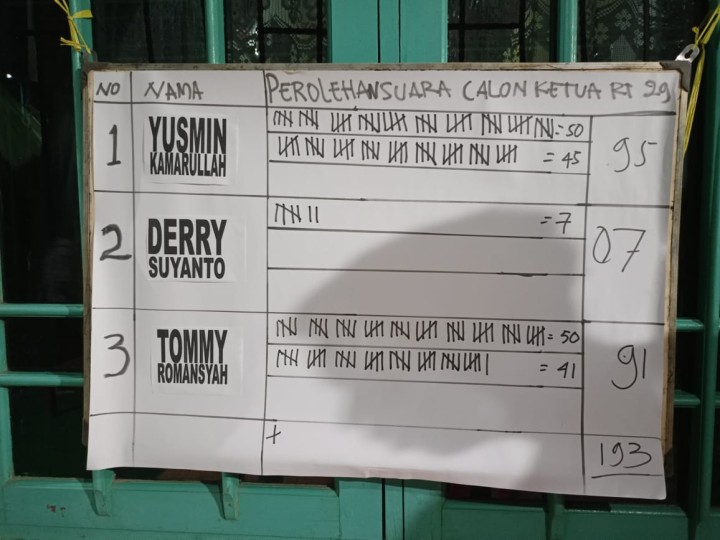 NO NAMA PEROLEHAN SUARA CALON KETUA RT 29
1 YUSMIN KAMARULLAH = 50 95
= 45
2 DERRY SUYANTO = 7 07
3 TOMMY ROMANSYAH = 50 91
= 41
+ 193